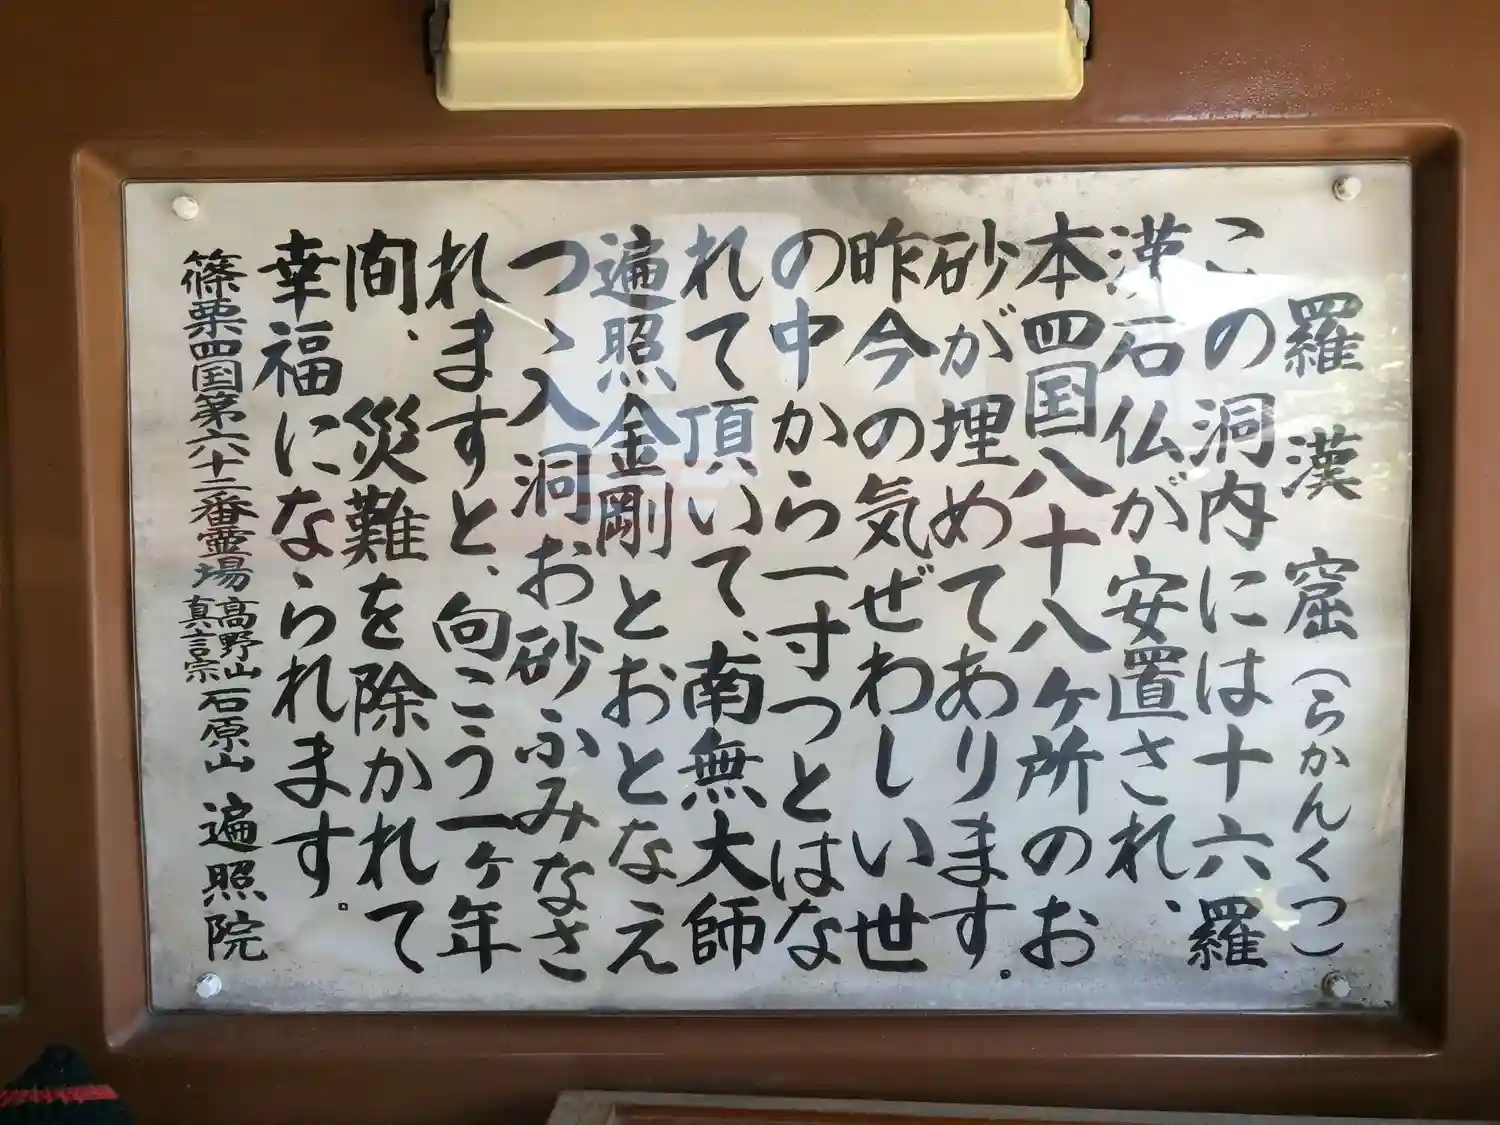 羅漢窟（らかんくつ）
この洞内には十六羅
漢石仏が安置され、
本四国八十八ヶ所のお
砂が埋めてあります。
昨今の気ぜわしい世
の中から一寸っとはな
れて頂いて、南無大師
遍照金剛とおとなえ
つゝ入洞お砂ふみなさ
れますと、向こう一ヶ年
間、災難を除かれて
幸福になられます。
篠栗四国第六十二番霊場 高野山真言宗 石原山 遍照院